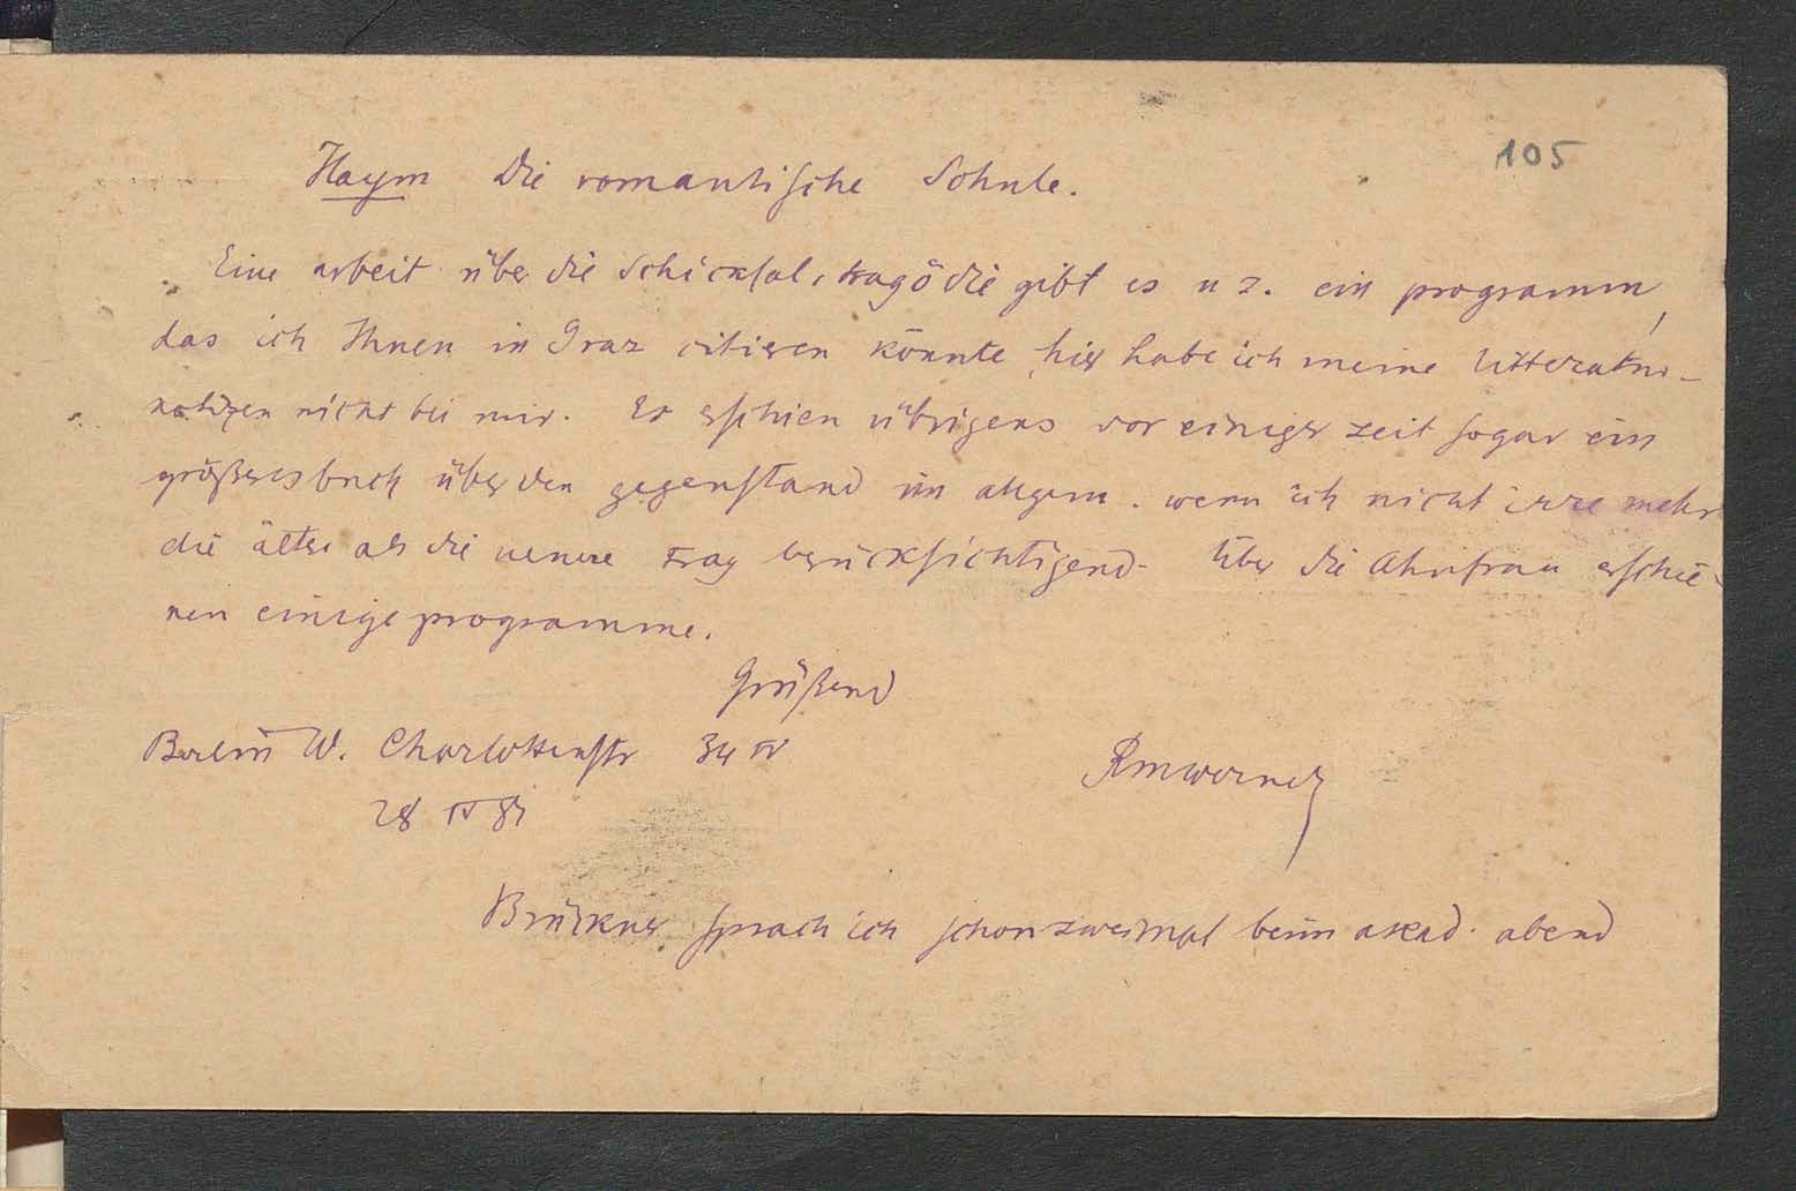 105
Haym Die romantische Schule.
Eine arbeit über die Schicksalstragödie gibt es u z. ein programm,
das ich Ihnen in Graz citieren könnte, hier habe ich meine Litteratur-
notizen nicht bei mir. Es erschien übrigens vor einiger zeit sogar ein
größeres buch über den gegenstand im allgem. wenn ich nicht irre mehr
die ältere als die neuere Trag berücksichtigend. Über die Ahnfrau erschie-
nen einige programme.
Grüßend
Berlin W. Charlottenstr 34 IV
RMWerner
28 IV 81
Brückner sprach ich schon zweimal beim akad. abend